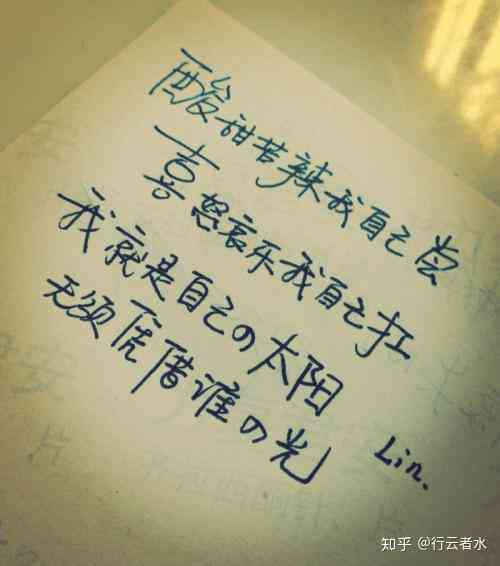 酸甜苦辣我自己尝
喜怒哀乐我自己扛
我就是自己の太阳
无须凭借谁の光
Lin.
知乎 @行云者水